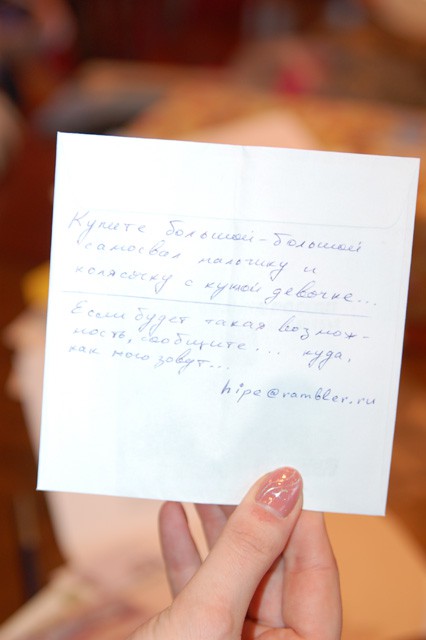 Купите большой-большой
самосвал мальчику и
колясочку с куклой девочке...
Если будет такая возмож-
ность, сообщите... куда,
как кого зовут...
hipe@rambler.ru